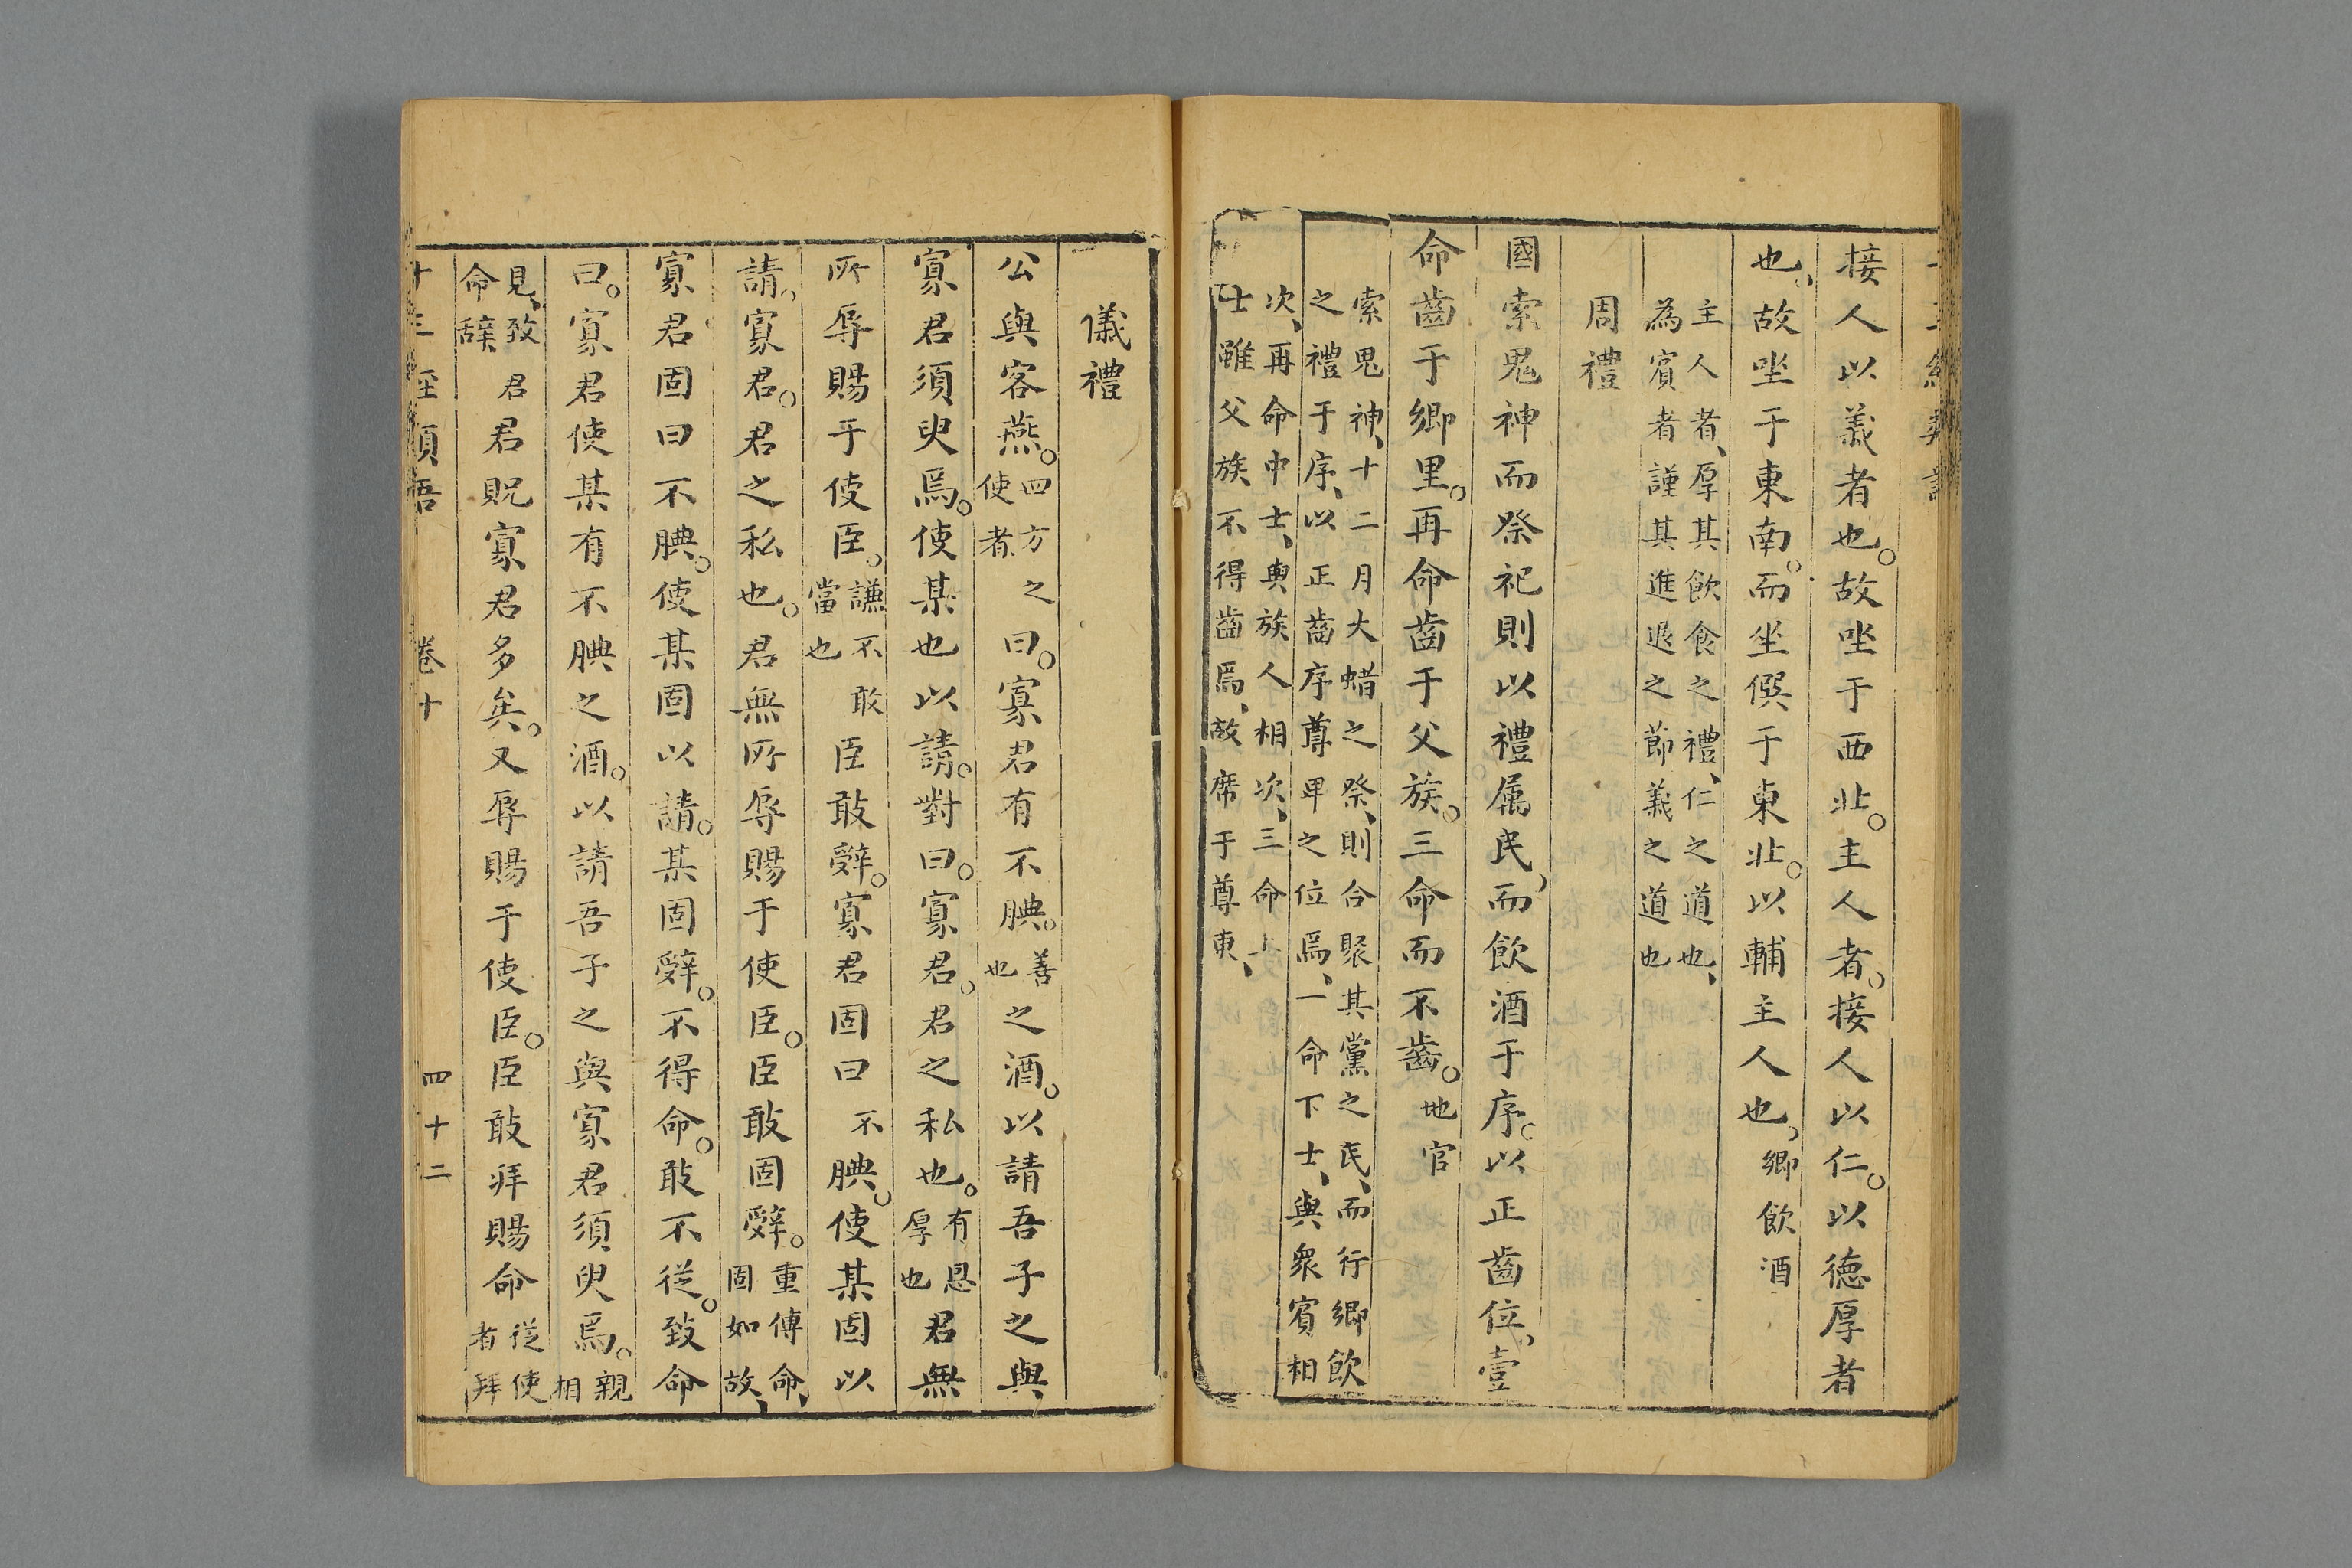 接人以義者也。故坐于西北。主人者。接人以仁。以德厚者
也。故坐于東南。而坐僎于東北。以輔主人也。鄉飲酒
主人者、厚其飲食之禮、仁之道也、
為賓者謹其進退之節義之道也
周禮
國索鬼神而祭祀則以禮属民而飲酒于序。以正齒位。壹
命齒于鄉里。再命齒于父族。三命而不齒。地官
索鬼神、十二月大蜡之祭、則合聚其黨之民、而行鄉飲
之禮于序、以正齒序尊卑之位焉、一命下士、與衆賓相
次、再命中士、與族人相次、三命上
士雖父族不得齒焉、故席于尊東、
儀禮
公與客燕。四方之
使者
曰。寡君有不腆。善
也
之酒。以請吾子之與
寡君須臾焉。使某也以請。對曰。寡君。君之私也。有恩
厚也
君無
所辱賜于使臣。謙不敢
當也
臣敢辤。寡君固曰不腆。使某固以
請。寡君。君之私也。君無所辱賜于使臣。臣敢固辤。重傳命、
固如故、
寡君固曰不腆。使某固以請。某固辤。不得命。敢不從。致命
曰。寡君使某有不腆之酒。以請吾子之與寡君須臾焉。親
相
見、致君
命辭
君貺寡君多矣。又辱賜于使臣。臣敢拜賜命從使
者拜
卷十
四十二